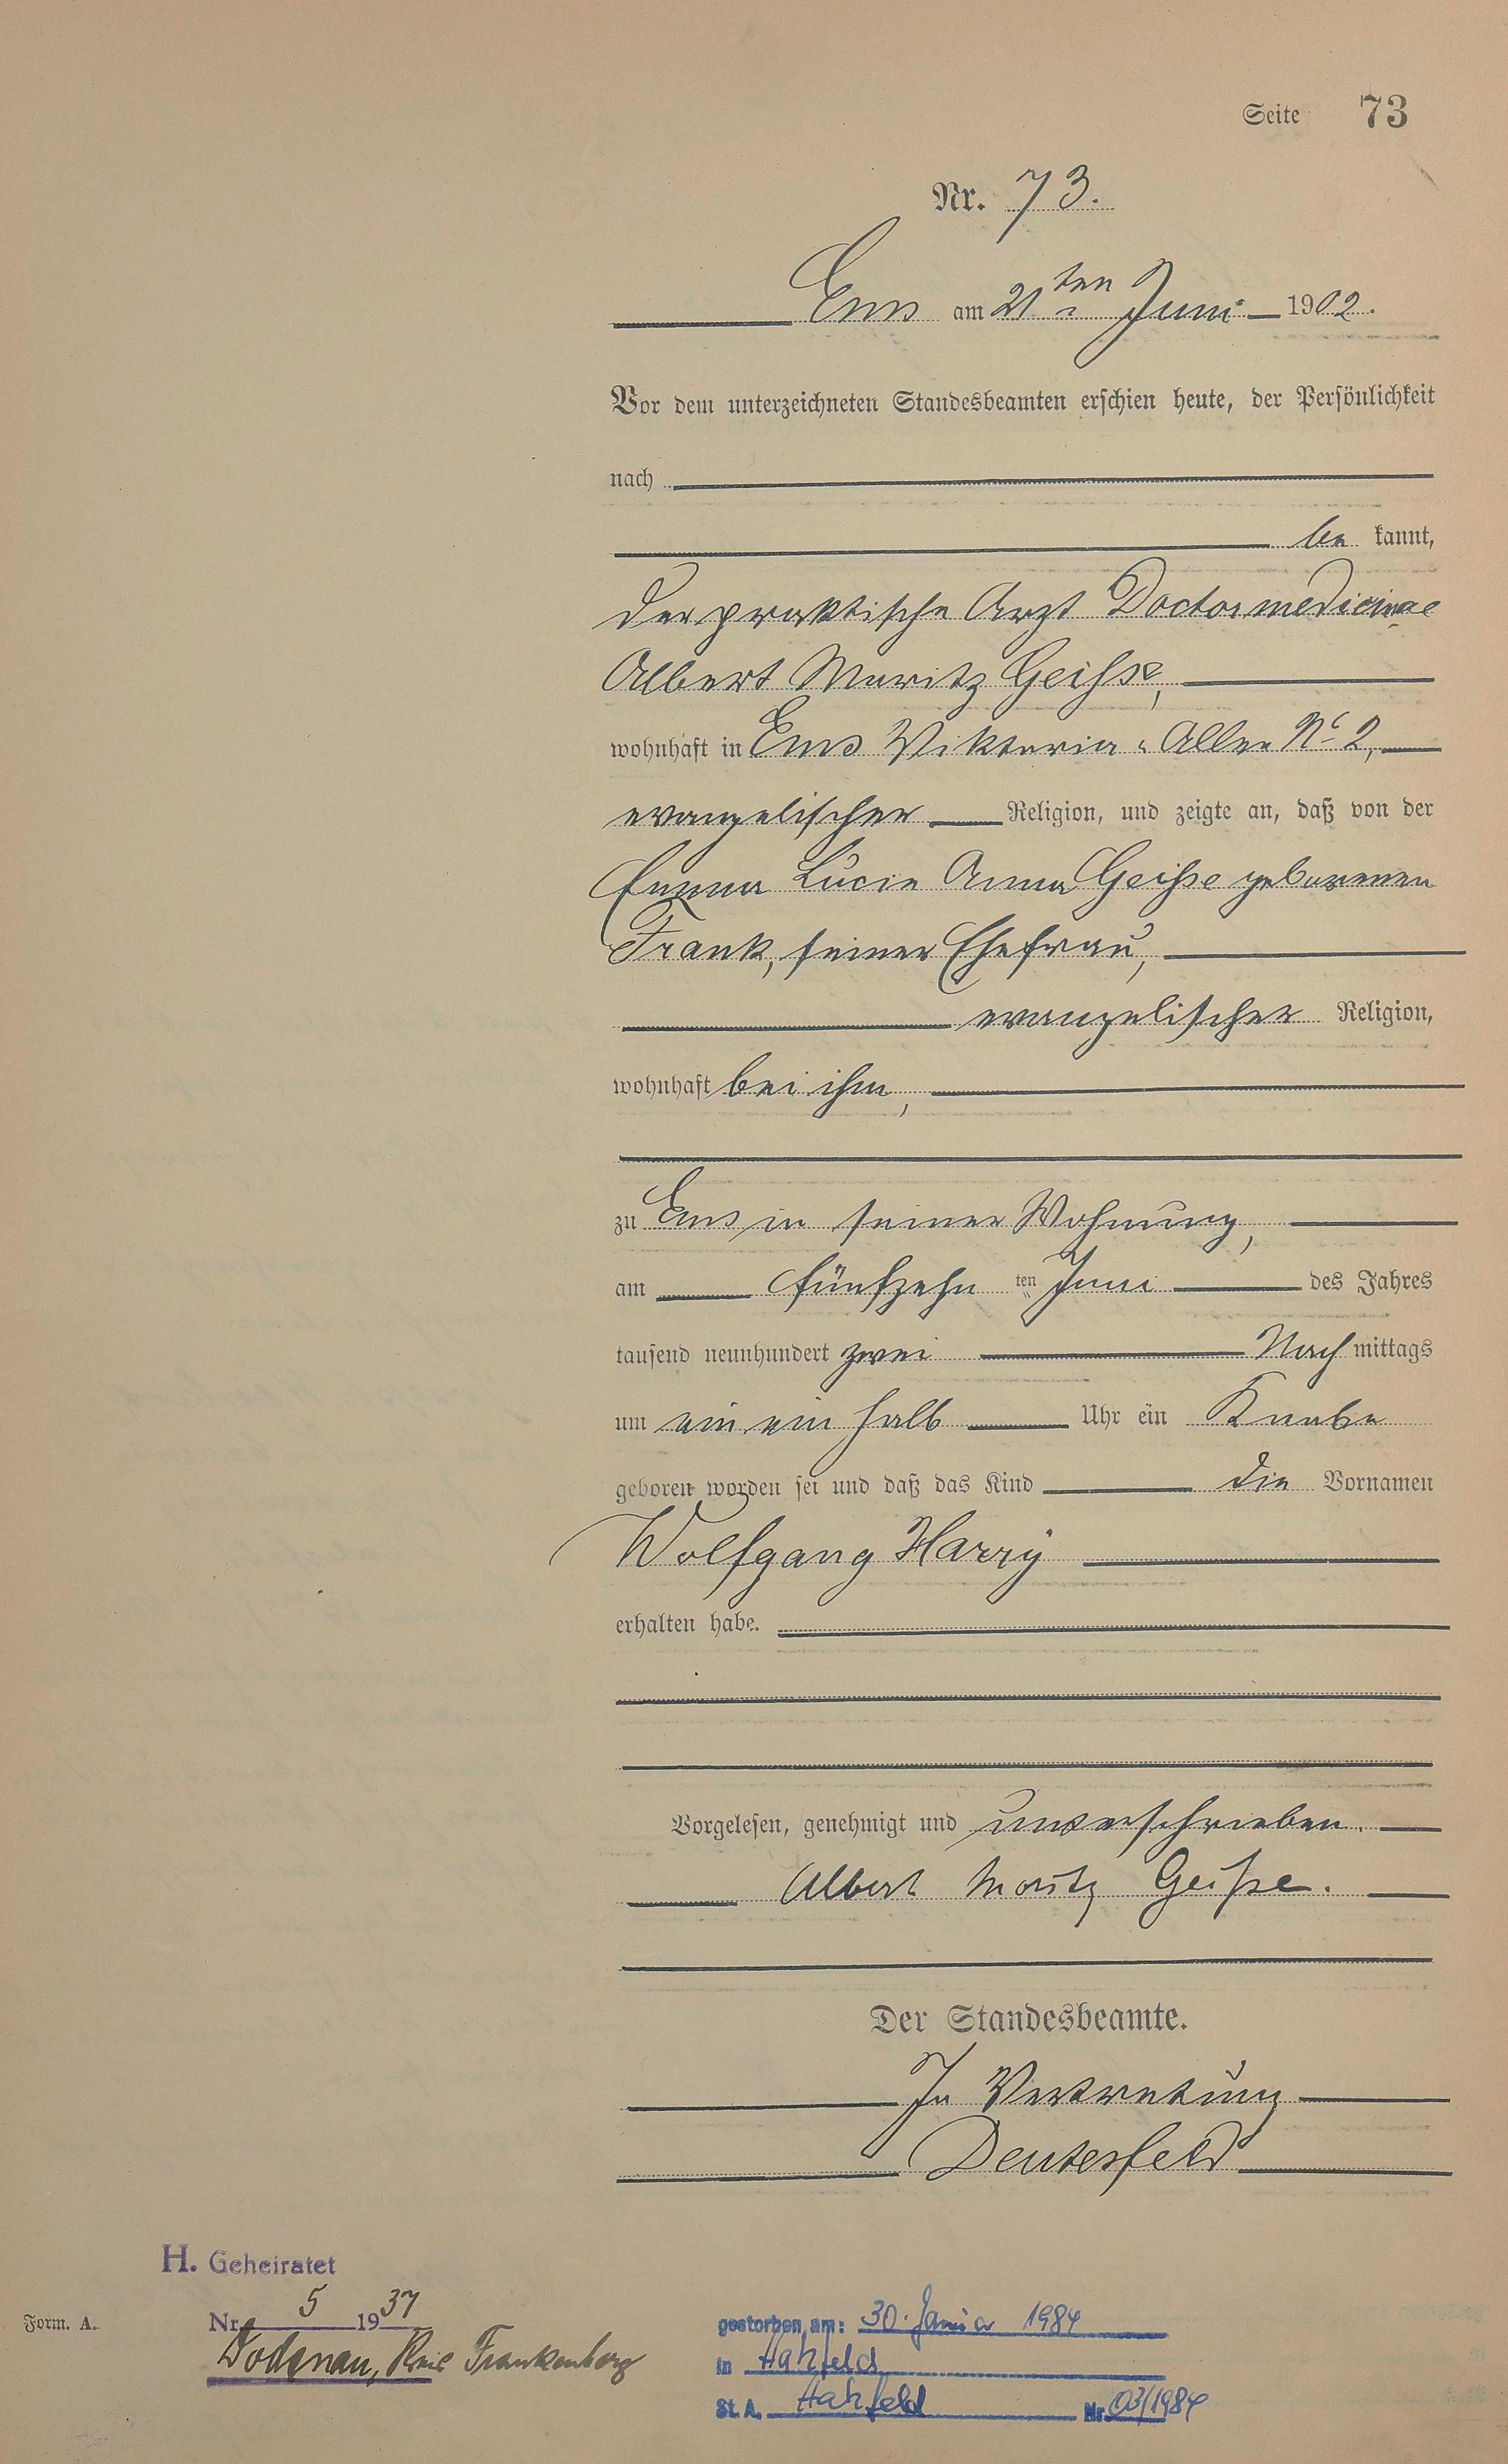 Seite 73
Nr. 73.
Ems am 21ten Juni 1902.
Vor dem unterzeichneten Standesbeamten erschien heute, der Persönlichkeit
nach
be kannt,
der praktische Arzt Doctor medicinae
Albert Moritz Geiſse,
wohnhaft in Ems Viktoria-Allee No 2,
evangelischer Religion, und zeigte an, daß von der
Emma Lucie Anna Geiſse geborenen
Frank, seiner Ehefrau,
evangelischer Religion,
wohnhaft bei ihm,
zu Ems in seiner Wohnung,
am fünfzehn ten Juni des Jahres
tausend neunhundert zwei Nach mittags
um ein ein halb Uhr ein Knabe
geboren worden sei und daß das Kind die Vornamen
Wolfgang Harry
erhalten habe.
Vorgelesen, genehmigt und unterschrieben.
Albert Moritz Geiſse.
Der Standesbeamte.
In Vertretung
Deutesfeld
H. Geheiratet
Nr. 5 1937
Dodenau, Kreis Frankenberg
Form. A.
gestorben am: 30. Januar 1984
in Hatzfeld
St. A. Hatzfeld Nr. 03/1984